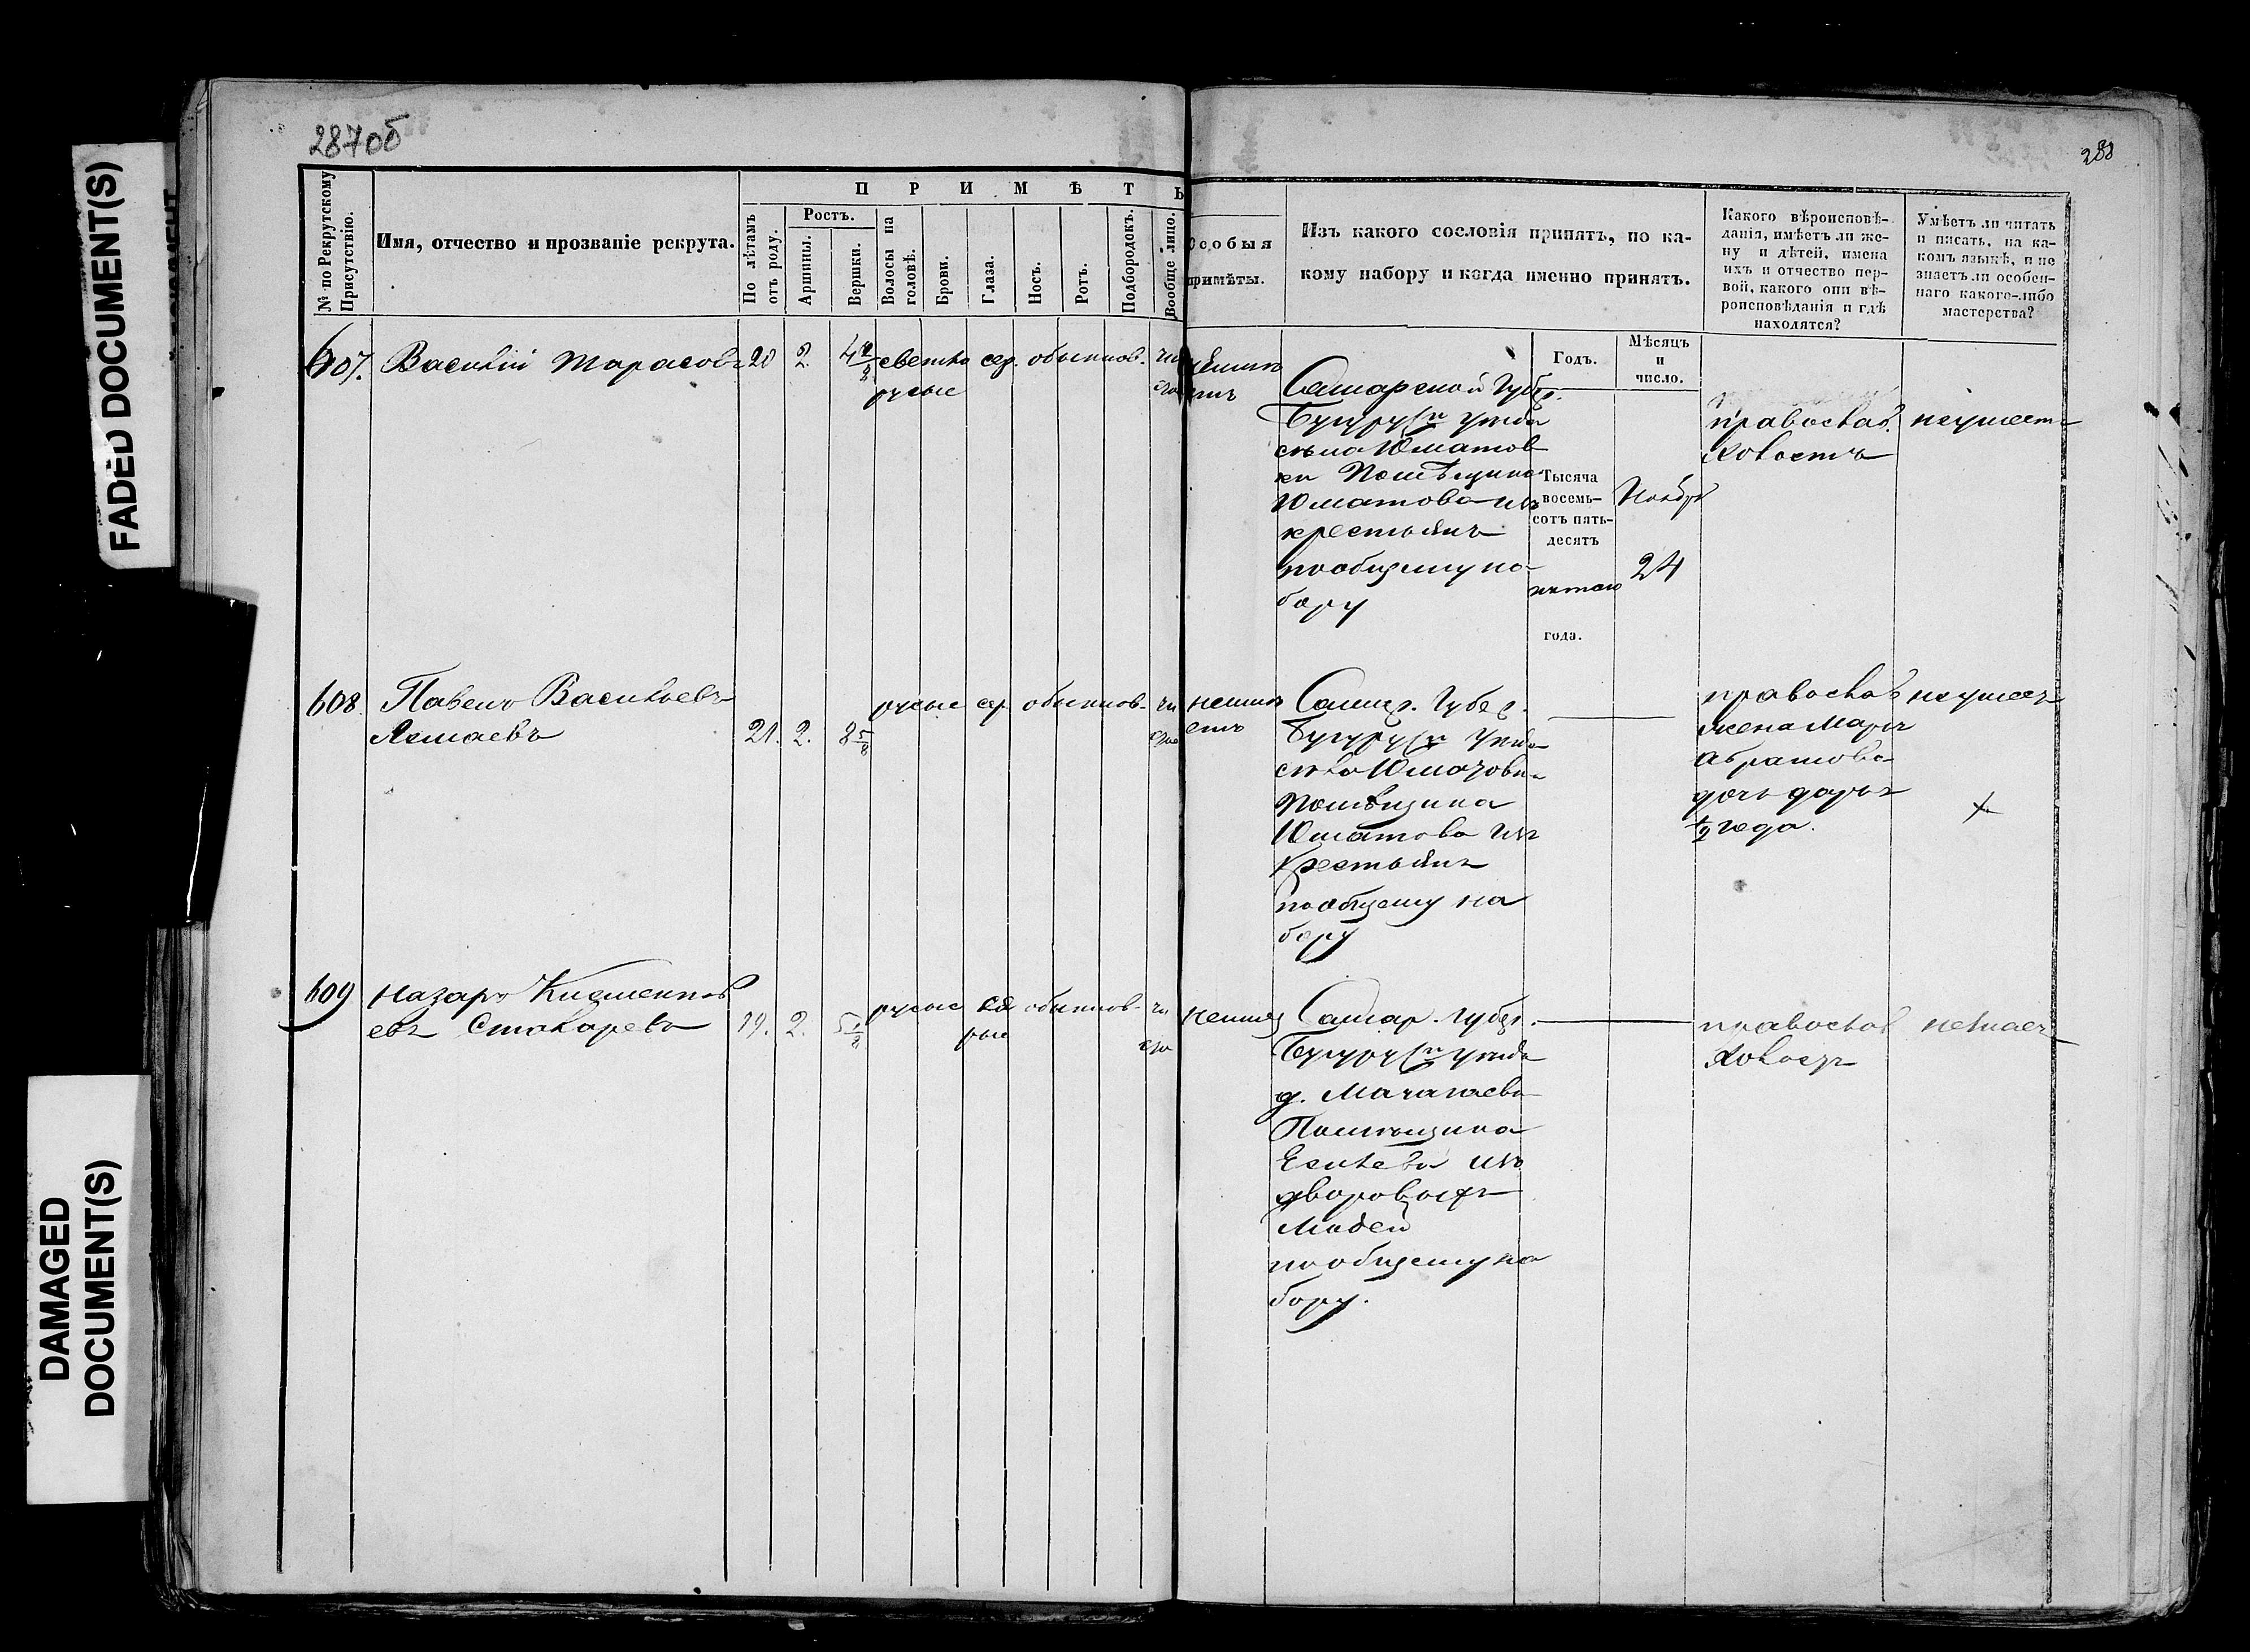 FADED DOCUMENT(S)
DAMAGED
DOCUMENT(S)
287об
288
ПРИМѢТЫ
№ по Рекрутскому Присутствію.
Имя, отчество и прозваніе рекрута.
По лѣтамъ отъ роду.
Ростъ.
Аршины.
Вершки.
Волосы на головѣ.
Брови.
Глаза.
Носъ.
Ротъ.
Подбородокъ.
Вообще лицо.
Особыя
примѣты.
Изъ какого сословія принятъ, по ка-
кому набору и когда именно принятъ.
Какого вѣроисповѣ-
данія, имѣетъ ли же-
ну и дѣтей, имена
ихъ и отчество пер-
вой, какого они вѣ-
роисповѣданія и гдѣ
находятся?
Умѣетъ ли читать
и писать, на ка-
комъ языкѣ, и не
знаетъ ли особен-
наго какого-либо
мастерства?
Годъ.
Мѣсяцъ
и
число.
607. Василій Тарасовъ 20 2. 4 светло сер. обыкнов. чи
русые сто
неимѣ
етъ
Самарской Губер.
Бугурус. уезда
села Юматов
ки Помѣщика
Юматова изъ
крестьянъ
пообщему на-
бору
Тысяча
восемь-
сотъ пять-
десятъ
пятаго
года.
Ноябр
24
православ.
холостъ
неумеетъ
608. Павелъ Васильевъ
Ясмаевъ 21. 2. 8 5/8 русые сер обыкнов. чи
стое
неимѣ
етъ
Самар. Губер.
Бугурус. уезда
села Юматовки
Помѣщика
Юматова изъ
Крестьянъ
пообщему на
бору
православ
жена Марья
Абрамова
дочь Дарья
1/2 года.
неумеетъ
609 Назаръ Клементь
евъ Столяревъ 19. 2. 5 русые се обыкнов. чи
рые сто
неимее
Самар. губер.
Бугурус. уезда
д.
Помѣщика
изъ
дворовыхъ
людей
пообщему на
бору.
православ
холостъ
незнаетъ